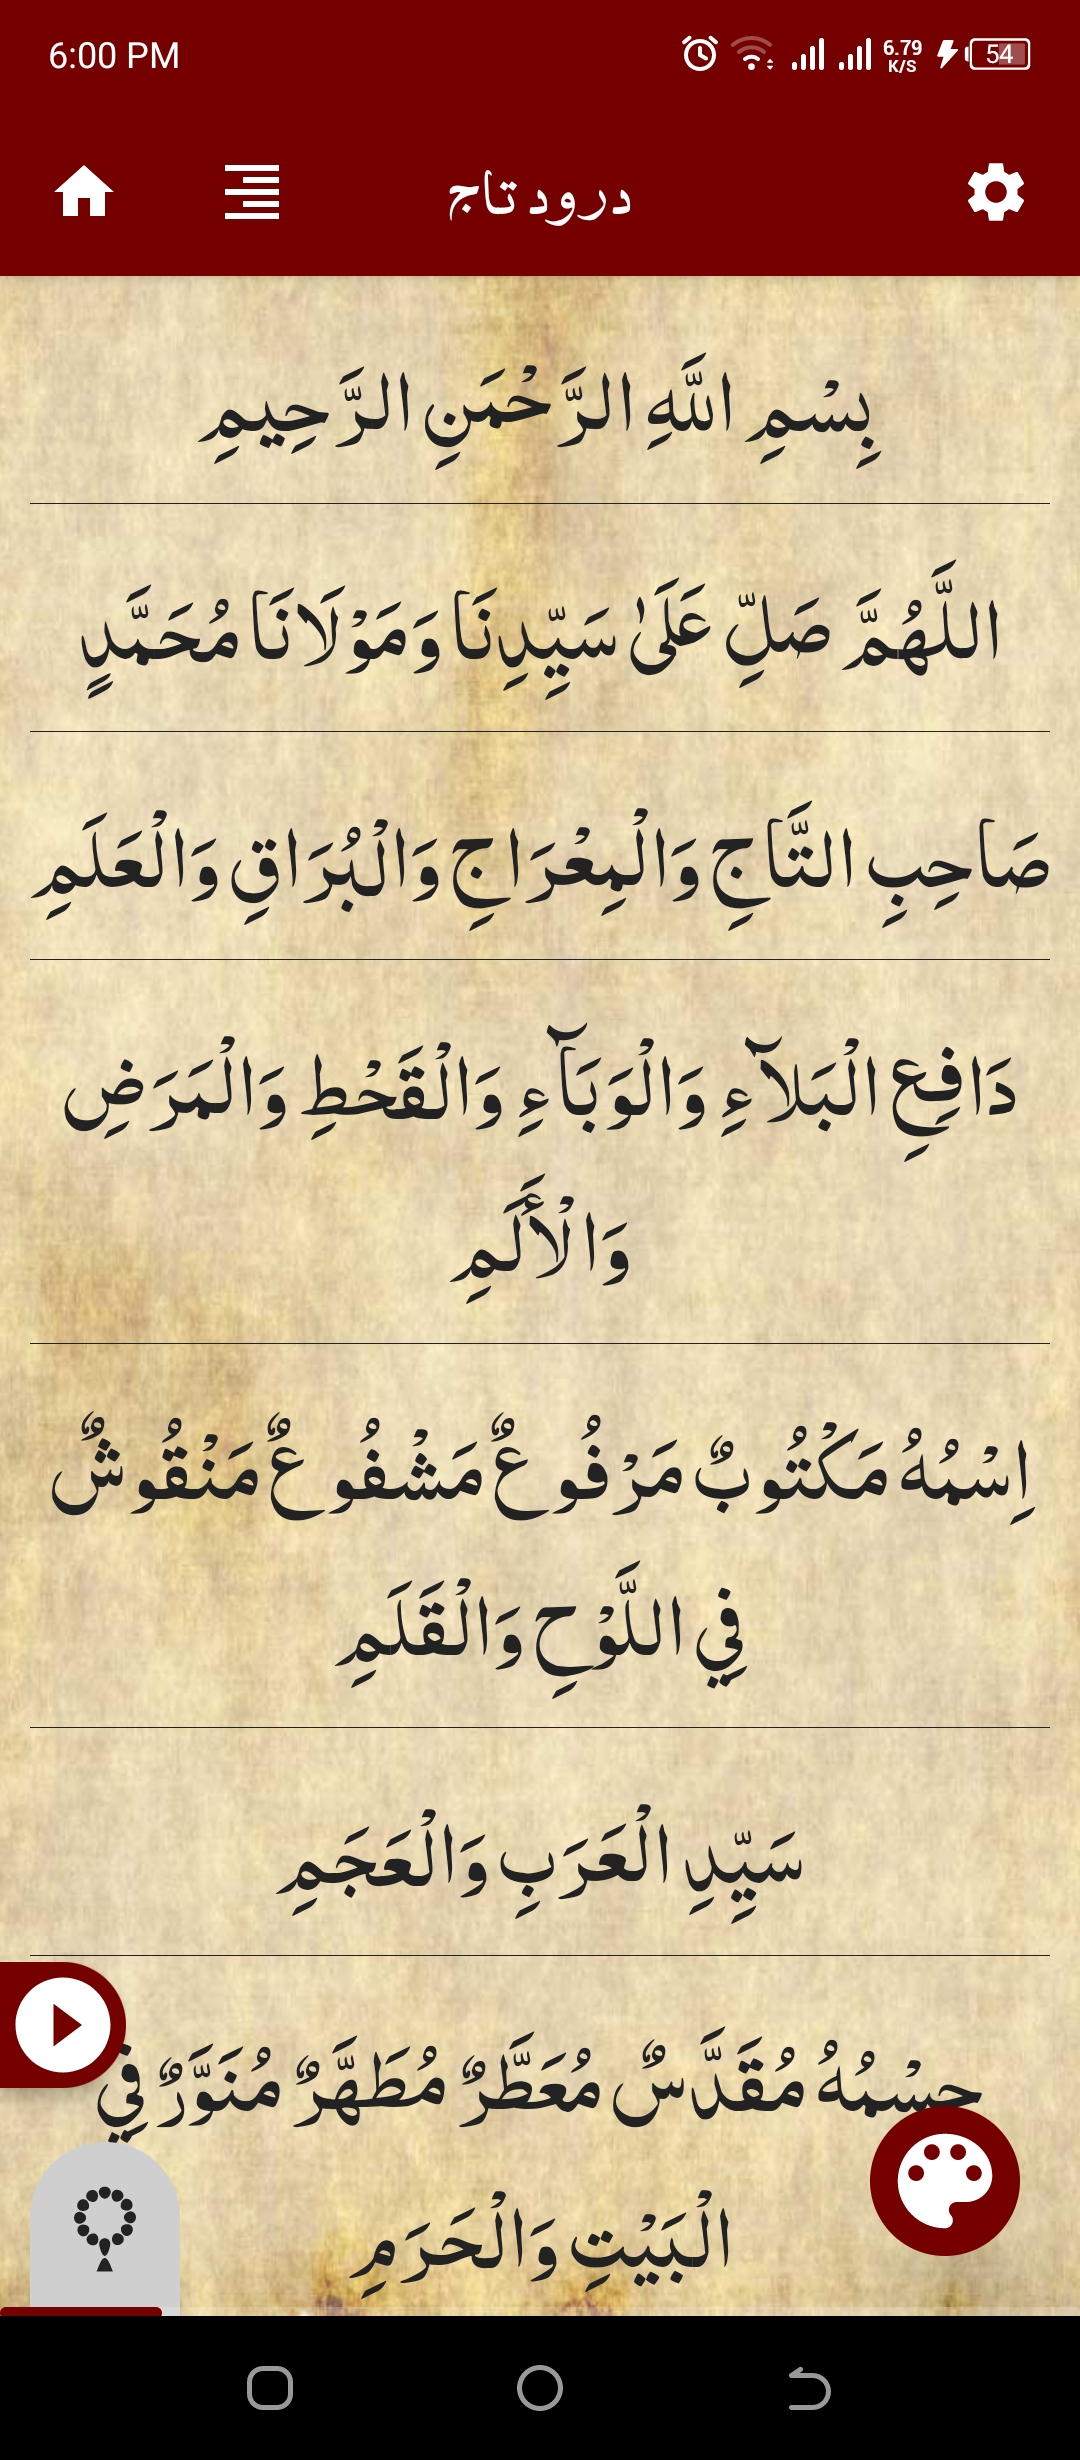 6:00 PM
6.79
K/S
54
درود تاج
بِسْمِ اللَّهِ الرَّحْمَنِ الرَّحِيمِ
اللَّهُمَّ صَلِّ عَلَىٰ سَيِّدِنَا وَمَوْلَانَا مُحَمَّدٍ
صَاحِبِ التَّاجِ وَالْمِعْرَاجِ وَالْبُرَاقِ وَالْعَلَمِ
دَافِعِ الْبَلَآءِ وَالْوَبَآءِ وَالْقَحْطِ وَالْمَرَضِ
وَالْأَلَمِ
اِسْمُهُ مَكْتُوبٌ مَرْفُوعٌ مَشْفُوعٌ مَنْقُوشٌ
فِي اللَّوْحِ وَالْقَلَمِ
سَيِّدِ الْعَرَبِ وَالْعَجَمِ
جِسْمُهُ مُقَدَّسٌ مُعَطَّرٌ مُطَهَّرٌ مُنَوَّرٌ فِي
الْبَيْتِ وَالْحَرَمِ